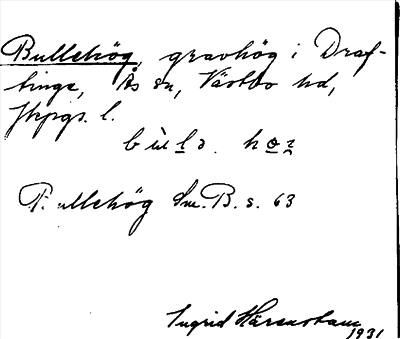 Bullehög, gravhög i Draf-
tinge, Ås sn, Västbo hd,
Jkpgs. l.
Bullehög Sm. B. s. 63
Ingrid
1931